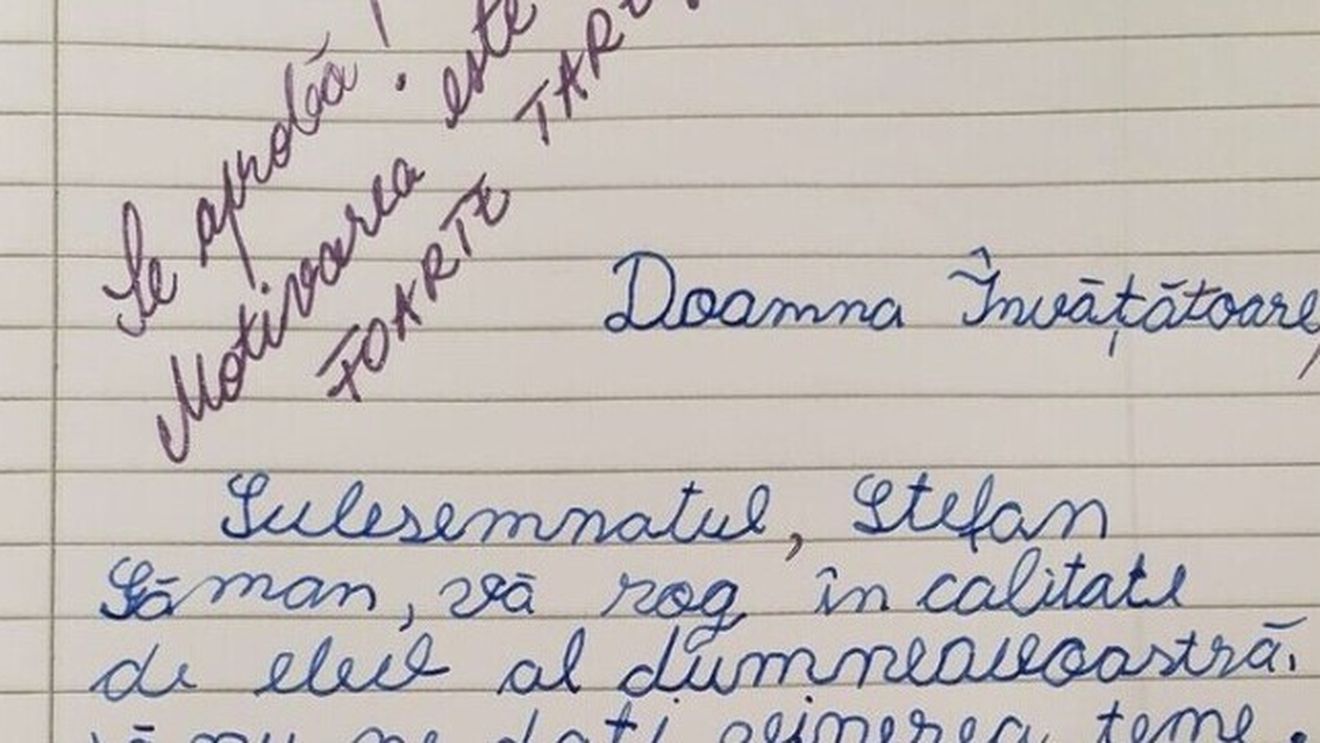 Se aprobă!
Motivarea este
FOARTE TARE
Doamna Învățătoare,
Subsemnatul, Ștefan
Găman, vă rog în calitate
de elev al dumneavoastră,
să nu ne dați vinerea teme.